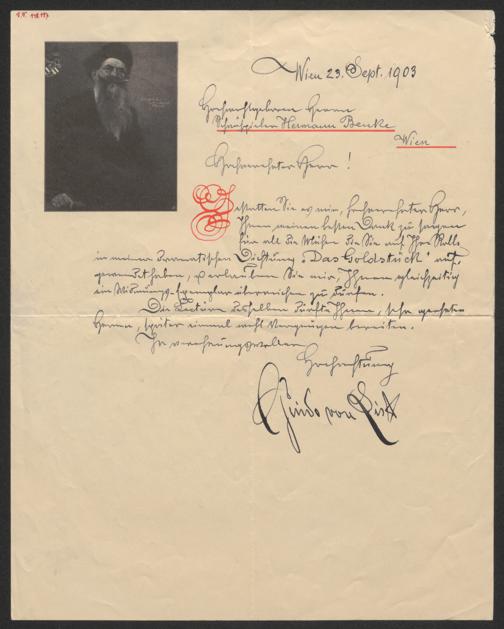 Wien 23. Sept. 1903
Hochwohlgeboren Herrn
Schauspieler Hermann Benke
Wien
Hochverehrter Herr!
Gestatten Sie es mir, hochverehrter Herr,
Ihnen meinen besten Dank zu sagen
für all die Mühen die Sie auf Ihre Rolle
in meiner dramatischen Dichtung „Das Goldstück“ auf-
gewendet haben, erlauben Sie mir, Ihnen gleichzeitig
ein Widmungs-Exemplar überreichen zu dürfen.
Die Lectüre desselben dürfte Ihnen, sehr geehrter
Herr, später einmal noch Vergnügen bereiten.
In verehrungsvoller
Hochachtung
Guido von List